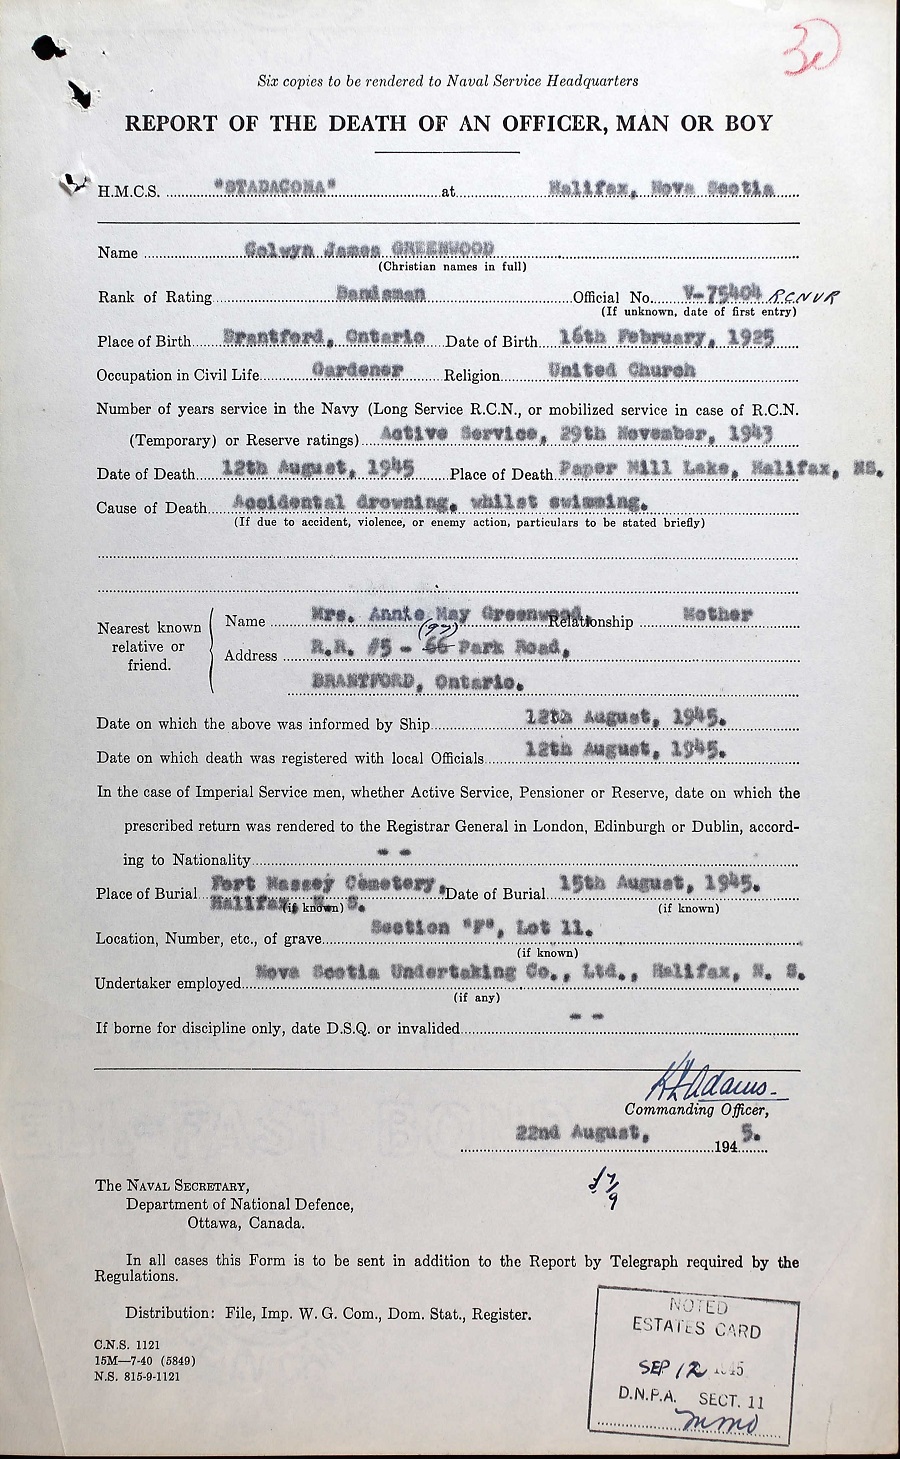 30
Six copies to be rendered to Naval Service Headquarters
REPORT OF THE DEATH OF AN OFFICER, MAN OR BOY
H.M.C.S. "STADACONA" at Halifax, Nova Scotia
Name Colwyn James GREENWOOD
(Christian names in full)
Rank of Rating Bandsman Official No. V-75404 RCNVR
(If unknown, date of first entry)
Place of Birth Brantford, Ontario Date of Birth 16th February, 1925
Occupation in Civil Life Gardener Religion United Church
Number of years service in the Navy (Long Service R.C.N., or mobilized service in case of R.C.N.
(Temporary) or Reserve ratings) Active Service, 29th November, 1943
Date of Death 12th August, 1945 Place of Death Paper Mill Lake, Halifax, NS.
Cause of Death Accidental drowning, whilst swimming.
(If due to accident, violence, or enemy action, particulars to be stated briefly)
Nearest known relative or friend.
Name Mrs. Annie May Greenwood, Relationship Mother
(97)
Address R.R. #5 - 66 Park Road,
BRANTFORD, Ontario.
Date on which the above was informed by Ship 12th August, 1945.
Date on which death was registered with local Officials 12th August, 1945.
In the case of Imperial Service men, whether Active Service, Pensioner or Reserve, date on which the
prescribed return was rendered to the Registrar General in London, Edinburgh or Dublin, accord-
ing to Nationality - -
Place of Burial Fort Massey Cemetery, Date of Burial 15th August, 1945.
Halifax, N. S. (if known) (if known)
Location, Number, etc., of grave Section "F", Lot 11.
(if known)
Undertaker employed Nova Scotia Undertaking Co., Ltd., Halifax, N. S.
(if any)
If borne for discipline only, date D.S.Q. or invalided - -
Adams
Commanding Officer,
22nd August, 1945.
The NAVAL SECRETARY,
Department of National Defence,
Ottawa, Canada.
In all cases this Form is to be sent in addition to the Report by Telegraph required by the
Regulations.
Distribution: File, Imp. W. G. Com., Dom. Stat., Register.
C.N.S. 1121
15M—7-40 (5849)
N.S. 815-9-1121
NOTED
ESTATES CARD
SEP 12 1945
D.N.P.A. SECT. 11